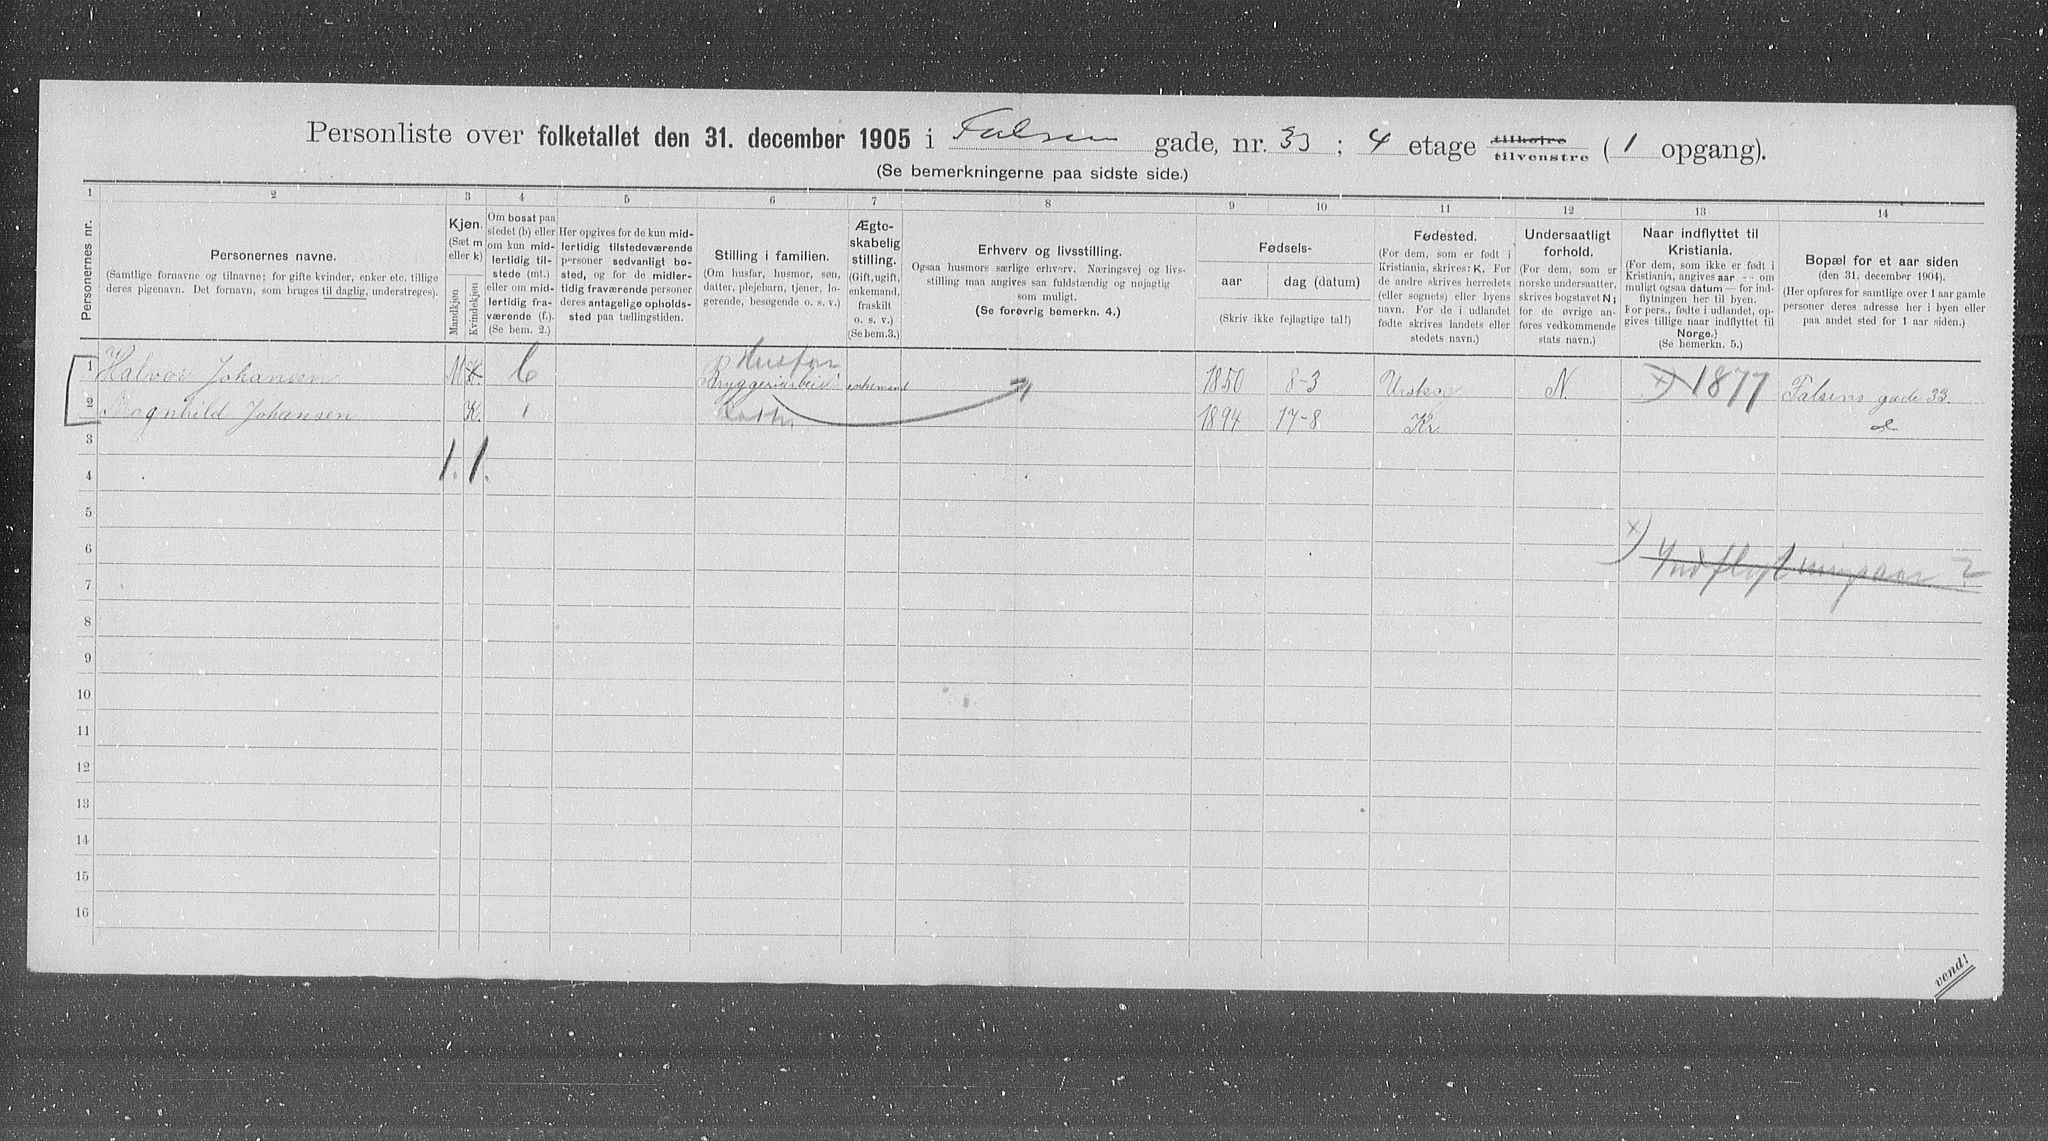 Personliste over folketallet den 31. december 1905 i Falsen gade, nr. 33 ; 4 etage tilhøjre tilvenstre ( 1 opgang).
(Se bemerkningerne paa sidste side.)
1 2 3 4 5 6 7 8 9 10 11 12 13 14
Personernes nr.
Personernes navne.
(Samtlige fornavne og tilnavne; for gifte kvinder, enker etc. tillige
deres pigenavn. Det fornavn, som bruges til daglig, understreges).
Kjøn.
(Sæt m
eller k)
Mandkjøn
Kvindekjøn
Om bosat paa
stedet (b) eller
om kun mid-
lertidig til-
stede (mt.)
eller om mid-
lertidig fra-
værende (f.).
(Se bem. 2.)
Her opgives for de kun mid-
lertidig tilstedeværende
personer sedvanligt bo-
sted, og for de midler-
tidig fraværende personer
deres antagelige opholds-
sted paa tællingstiden.
Stilling i familien.
(Om husfar, husmor, søn,
datter, plejebarn, tjener, lo-
gerende, besøgende o. s. v.)
Ægte-
skabelig
stilling.
(Gift, ugift,
enkemand,
fraskilt
o. s. v.)
(Se bem.3.)
Erhverv og livsstilling.
Ogsaa husmors særlige erhverv. Næringsvej og livs-
stilling maa angives saa fuldstændig og nøjagtig
som muligt.
(Se forøvrig bemerkn. 4.)
Fødsels-
aar
dag (datum)
(Skriv ikke fejlagtige tal!)
Fødested.
(For dem, som er født i
Kristiania, skrives: K. For
de andre skrives herredets
(eller sognets) eller byens
navn. For de i udlandet
fødte skrives landets eller
stedets navn.)
Undersaatligt
forhold.
(For dem, som er
norske undersaatter,
skrives bogstavet N;
for de øvrige an-
føres vedkommende
stats navn.)
Naar indflyttet til
Kristiania.
(For dem, som ikke er født i
Kristiania, angives aar -- om
muligt ogsaa datum — for ind-
flytningen her til byen.
For pers., fødte i udlandet, op-
gives tillige naar indflyttet til
Norge.)
(Se bemerkn. 5.)
Bopæl for et aar siden
(den 31. december 1904).
(Her opføres for samtlige over 1 aar gamle
personer deres adresse her i byen eller
paa andet sted for 1 aar siden.)
Husfar
1 Halvor Johansen M K. b Bryggeriarbeid enkemand 1850 8-3 Urskog N. x) 1877 Falsens gade 33.
2 Ragnhild Johansen K. 1894 17-8 Kr.
3
1. 1.
4
5
x) Indflytningsaar ?
6
7
8
9
10
11
12
13
14
15
16
vend!